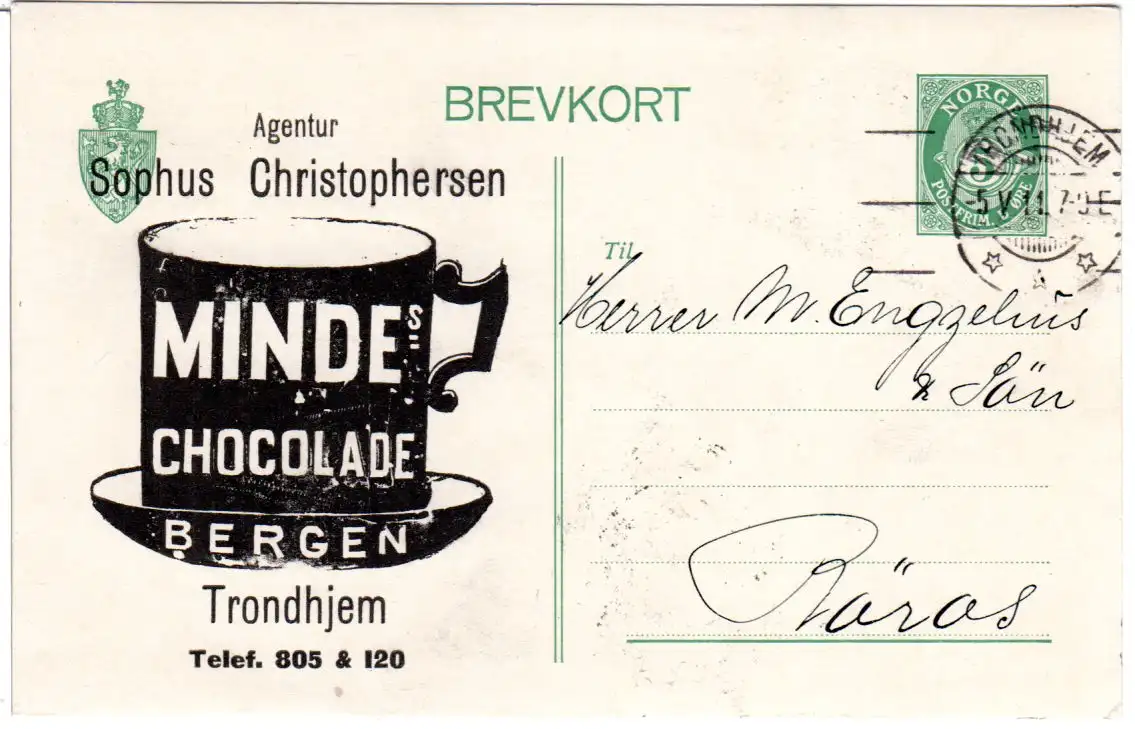 BREVKORT
Agentur
Sophus Christophersen
MINDES
CHOCOLADE
BERGEN
Trondhjem
Telef. 805 & 120
NORGE
5
POSTFRIM. ØRE
TRONDHJEM
-5 V 11. 7-
Til
Herrer M. Engzelius
& Sön
Röros